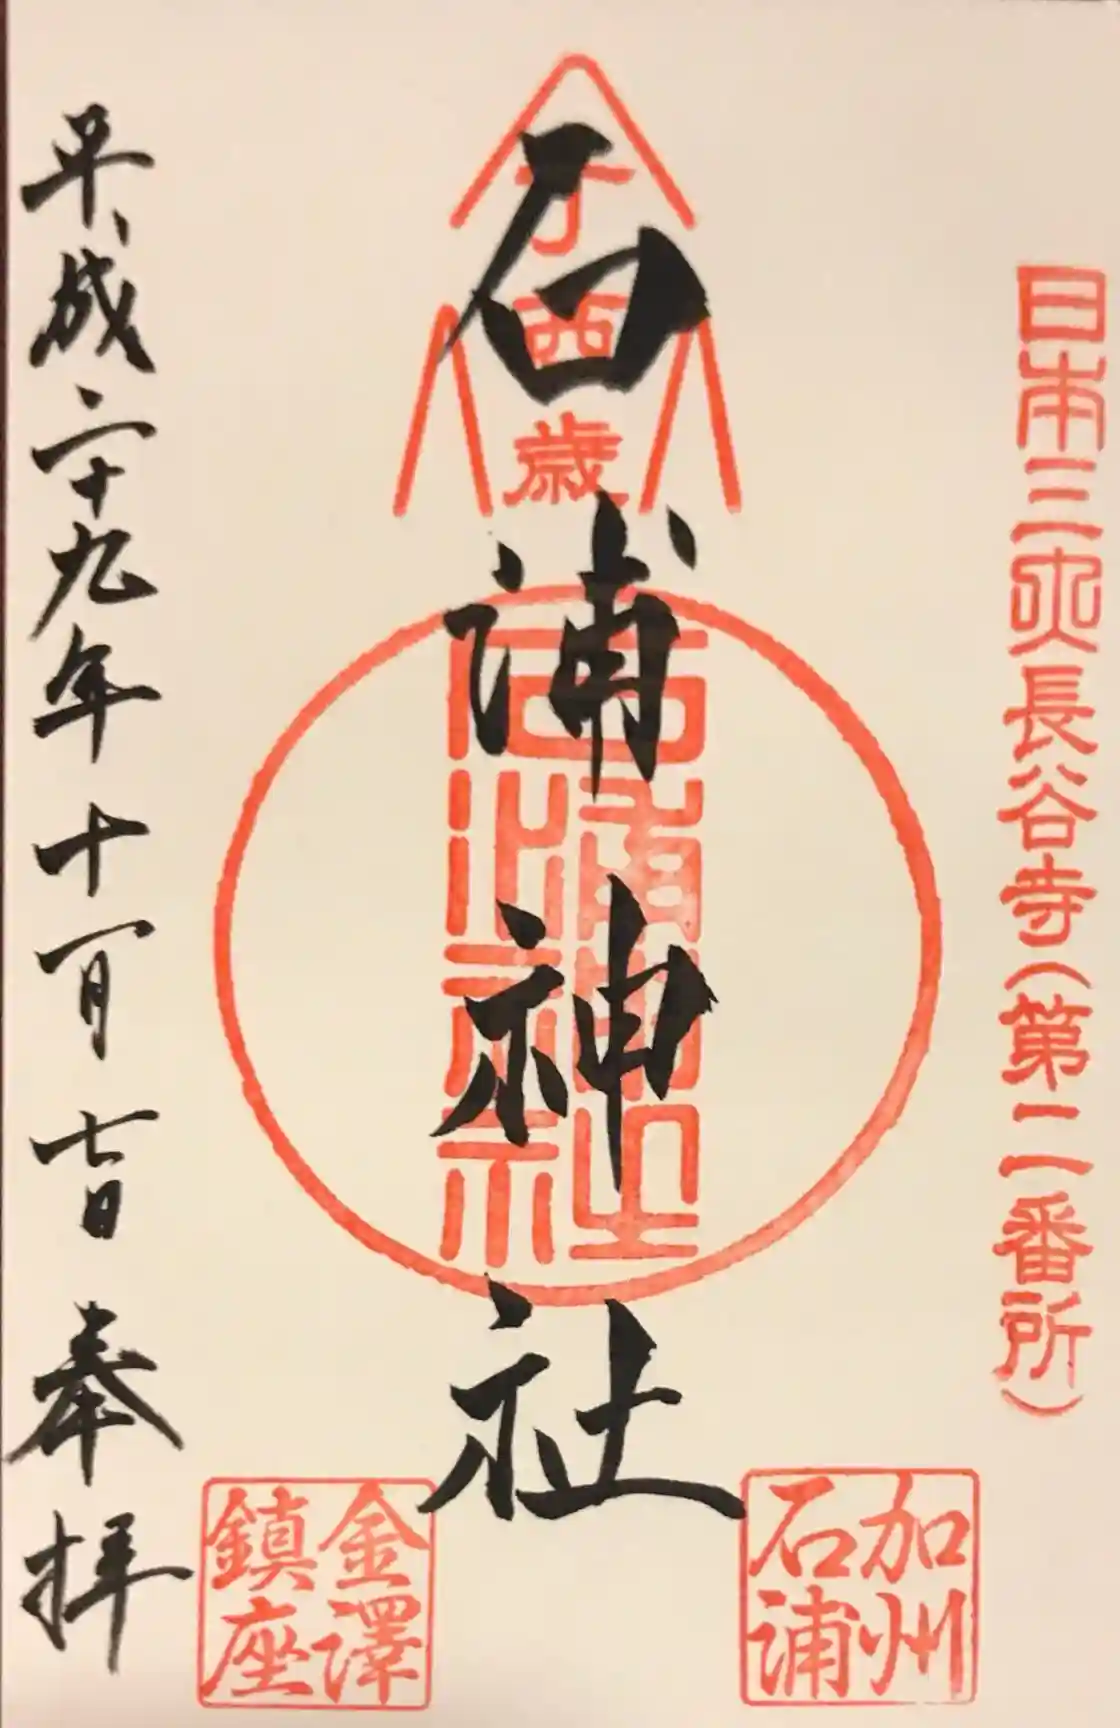 日本三大長谷寺(第二番所)
加州
石浦
丁酉歳
石浦神社
金澤
鎮座
平成二十九年十一月七日 奉拝